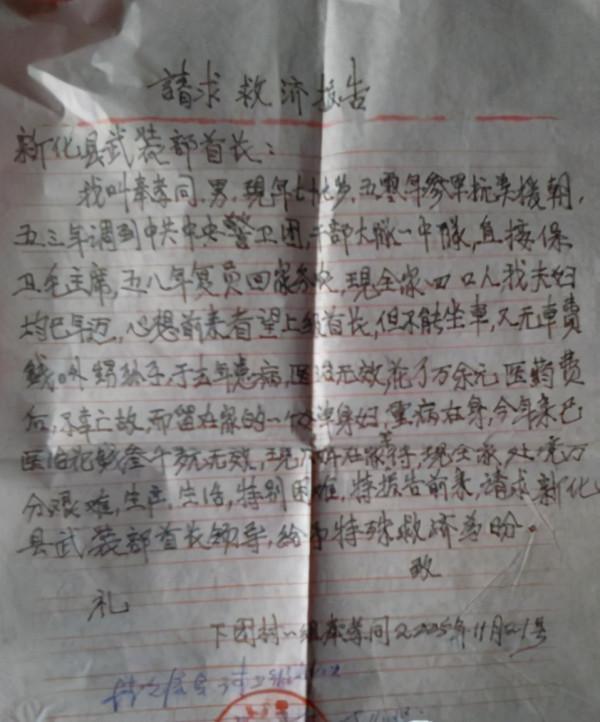 請求救济报告
新化县武装部首长：
我叫奉孝同,男,现年七十七岁,五零年参军抗美援朝,
五三年调到中共中央警卫团,干部大队一中隊,直接保
卫毛主席,五八年复员回家务农,现全家四口人我夫妇
均已年迈,心想前来看望上级首长,但不能坐車,又元車费
钱。外甥孙子,于去年患病,医治无效花了万余元医药费
后,不幸亡故,而留在家的一个单身妇,重病在身,今年来已
医治花幣叁千多元无效,现在家待,现全家处境万
分艰难,生产、生活,特别困难,特报告前来,請求新化
县武装部首长领导,给予特殊救济为盼。
致
礼
下团村一组奉孝同 2005年11月21号